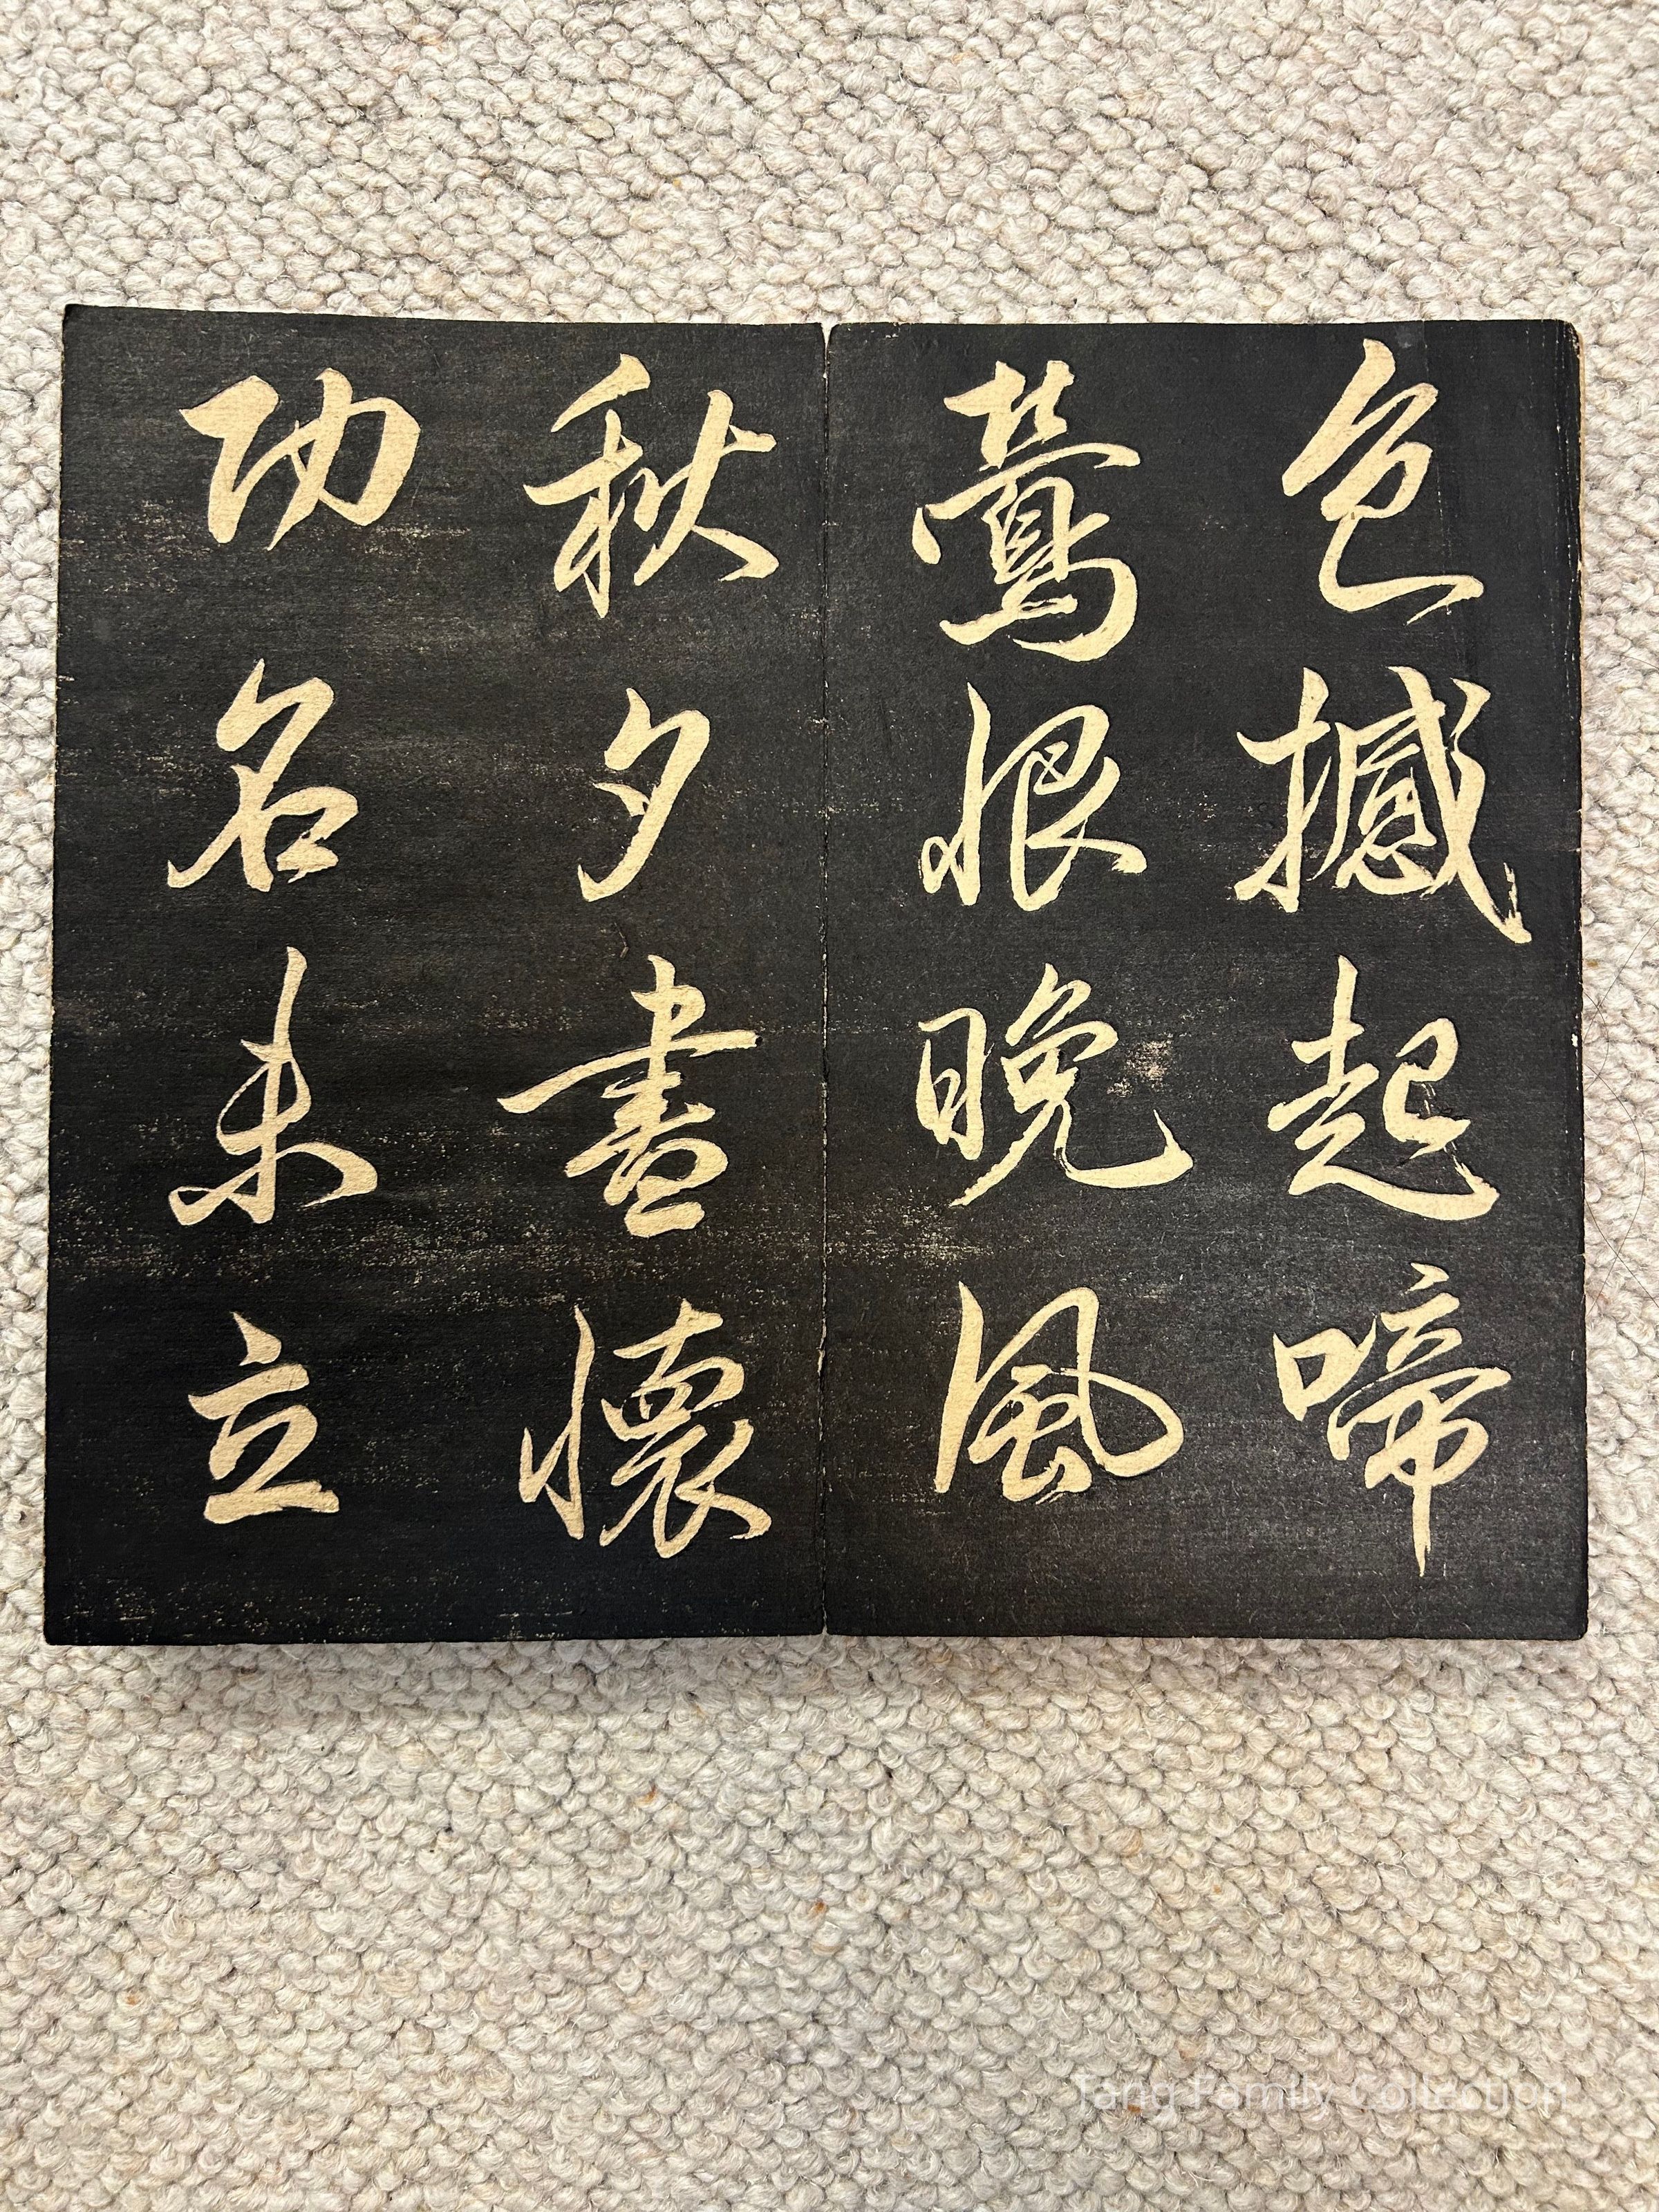 色撼起啼
鶯恨晚風
秋夕書懷
功名未立
Tang Family Collection